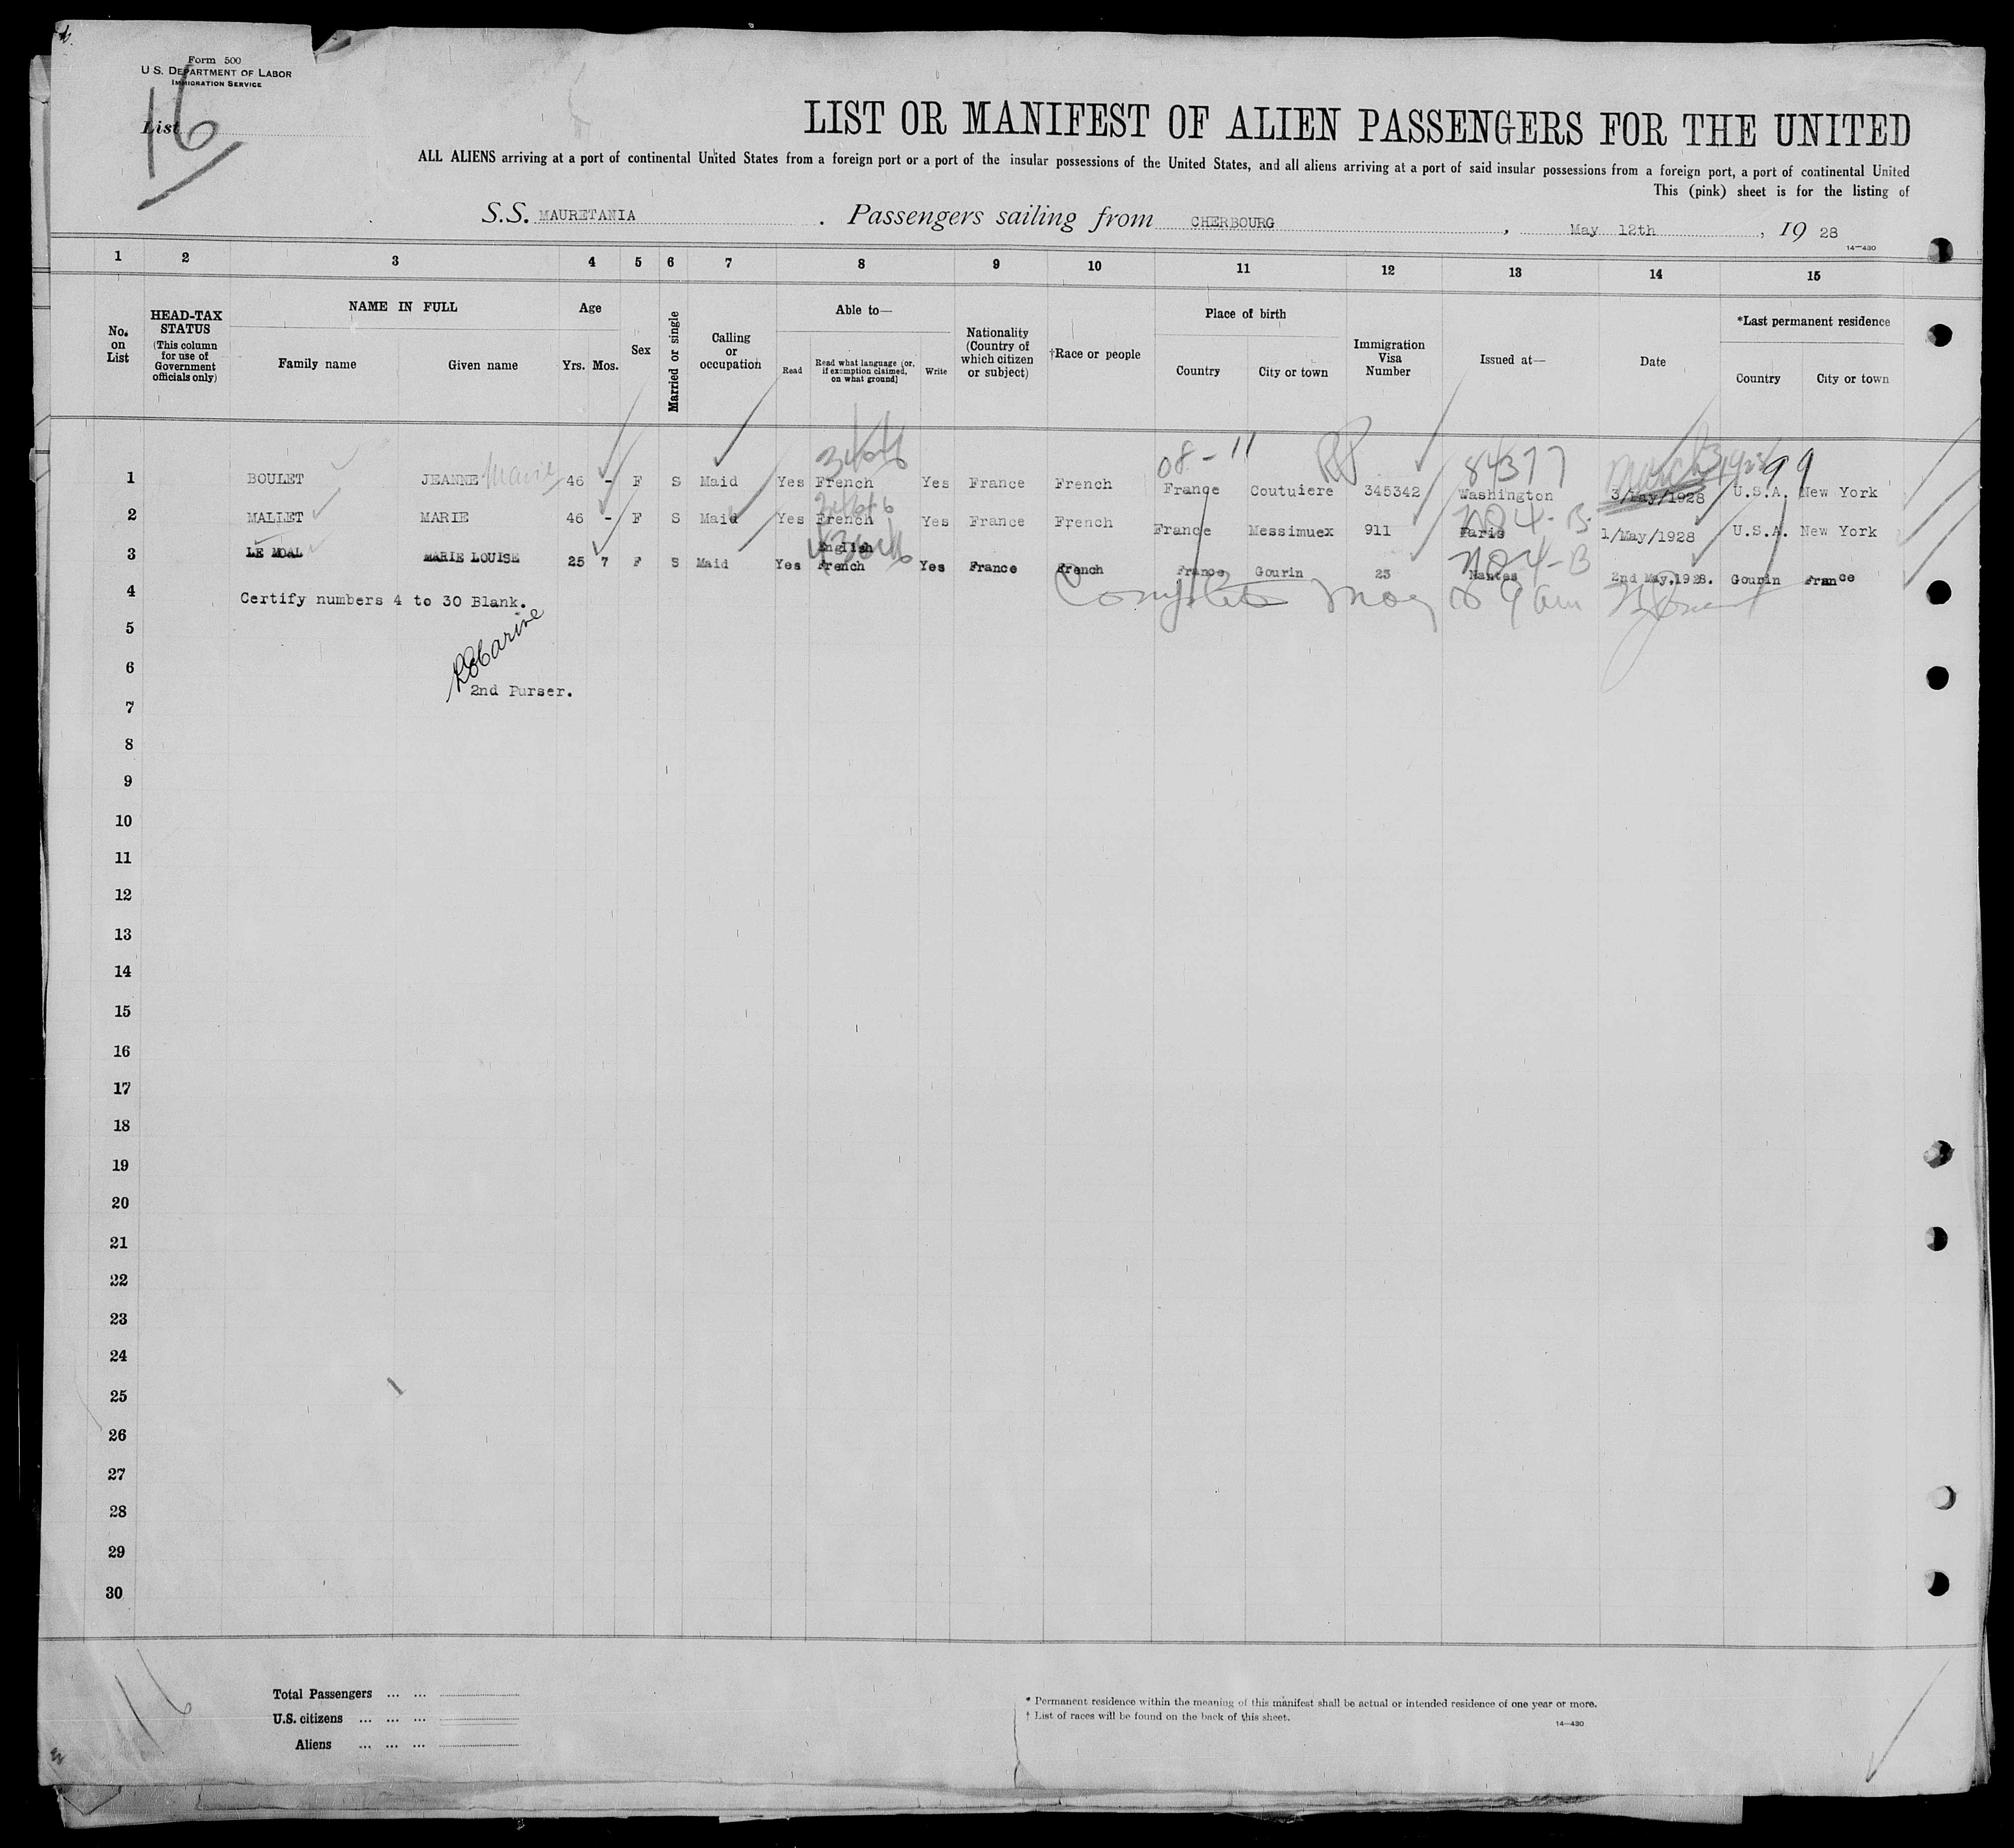 Form 500
U S. DEPARTMENT OF LABOR
IMMIGRATION SERVICE
List 16
LIST OR MANIFEST OF ALIEN PASSENGERS FOR THE UNITED
ALL ALIENS arriving at a port of continental United States from a foreign port or a port of the insular possessions of the United States, and all aliens arriving at a port of said insular possessions from a foreign port, a port of continental United
This (pink) sheet is for the listing of
S.S. MAURETANIA . Passengers sailing from CHERBOURG , May 12th , 19 28
14—430
1 2 3 4 5 6 7 8 9 10 11 12 13 14 15
No. on List
HEAD-TAX STATUS
(This column for use of Government officials only)
NAME IN FULL
Family name Given name
Age
Yrs. Mos.
Sex
Married or single
Calling or occupation
Able to—
Read
Read what language (or, if exemption claimed, on what ground)
Write
Nationality (Country of which citizen or subject)
†Race or people
Place of birth
Country City or town
Immigration Visa Number
Issued at—
Date
*Last permanent residence
Country City or town
08-11 84377 99
1 BOULET JEANNE Marie 46 - F S Maid Yes French Yes France French France Coutuiere 345342 Washington 3/May/1928 U.S.A. New York
N04-B.
2 MALLET MARIE 46 - F S Maid Yes French Yes France French France Messimuex 911 Paris 1/May/1928 U.S.A. New York
English N04-B
3 LE MOAL MARIE LOUISE 25 7 F S Maid Yes French Yes France French France Gourin 23 Nantes 2nd May,1928. Gourin France
4 Certify numbers 4 to 30 Blank.
5
6
2nd Purser.
7
8
9
10
11
12
13
14
15
16
17
18
19
20
21
22
23
24
25
26
27
28
29
30
16
Total Passengers ... ...
U.S. citizens ... ... ...
Aliens ... ... ...
* Permanent residence within the meaning of this manifest shall be actual or intended residence of one year or more.
† List of races will be found on the back of this sheet.
14—430